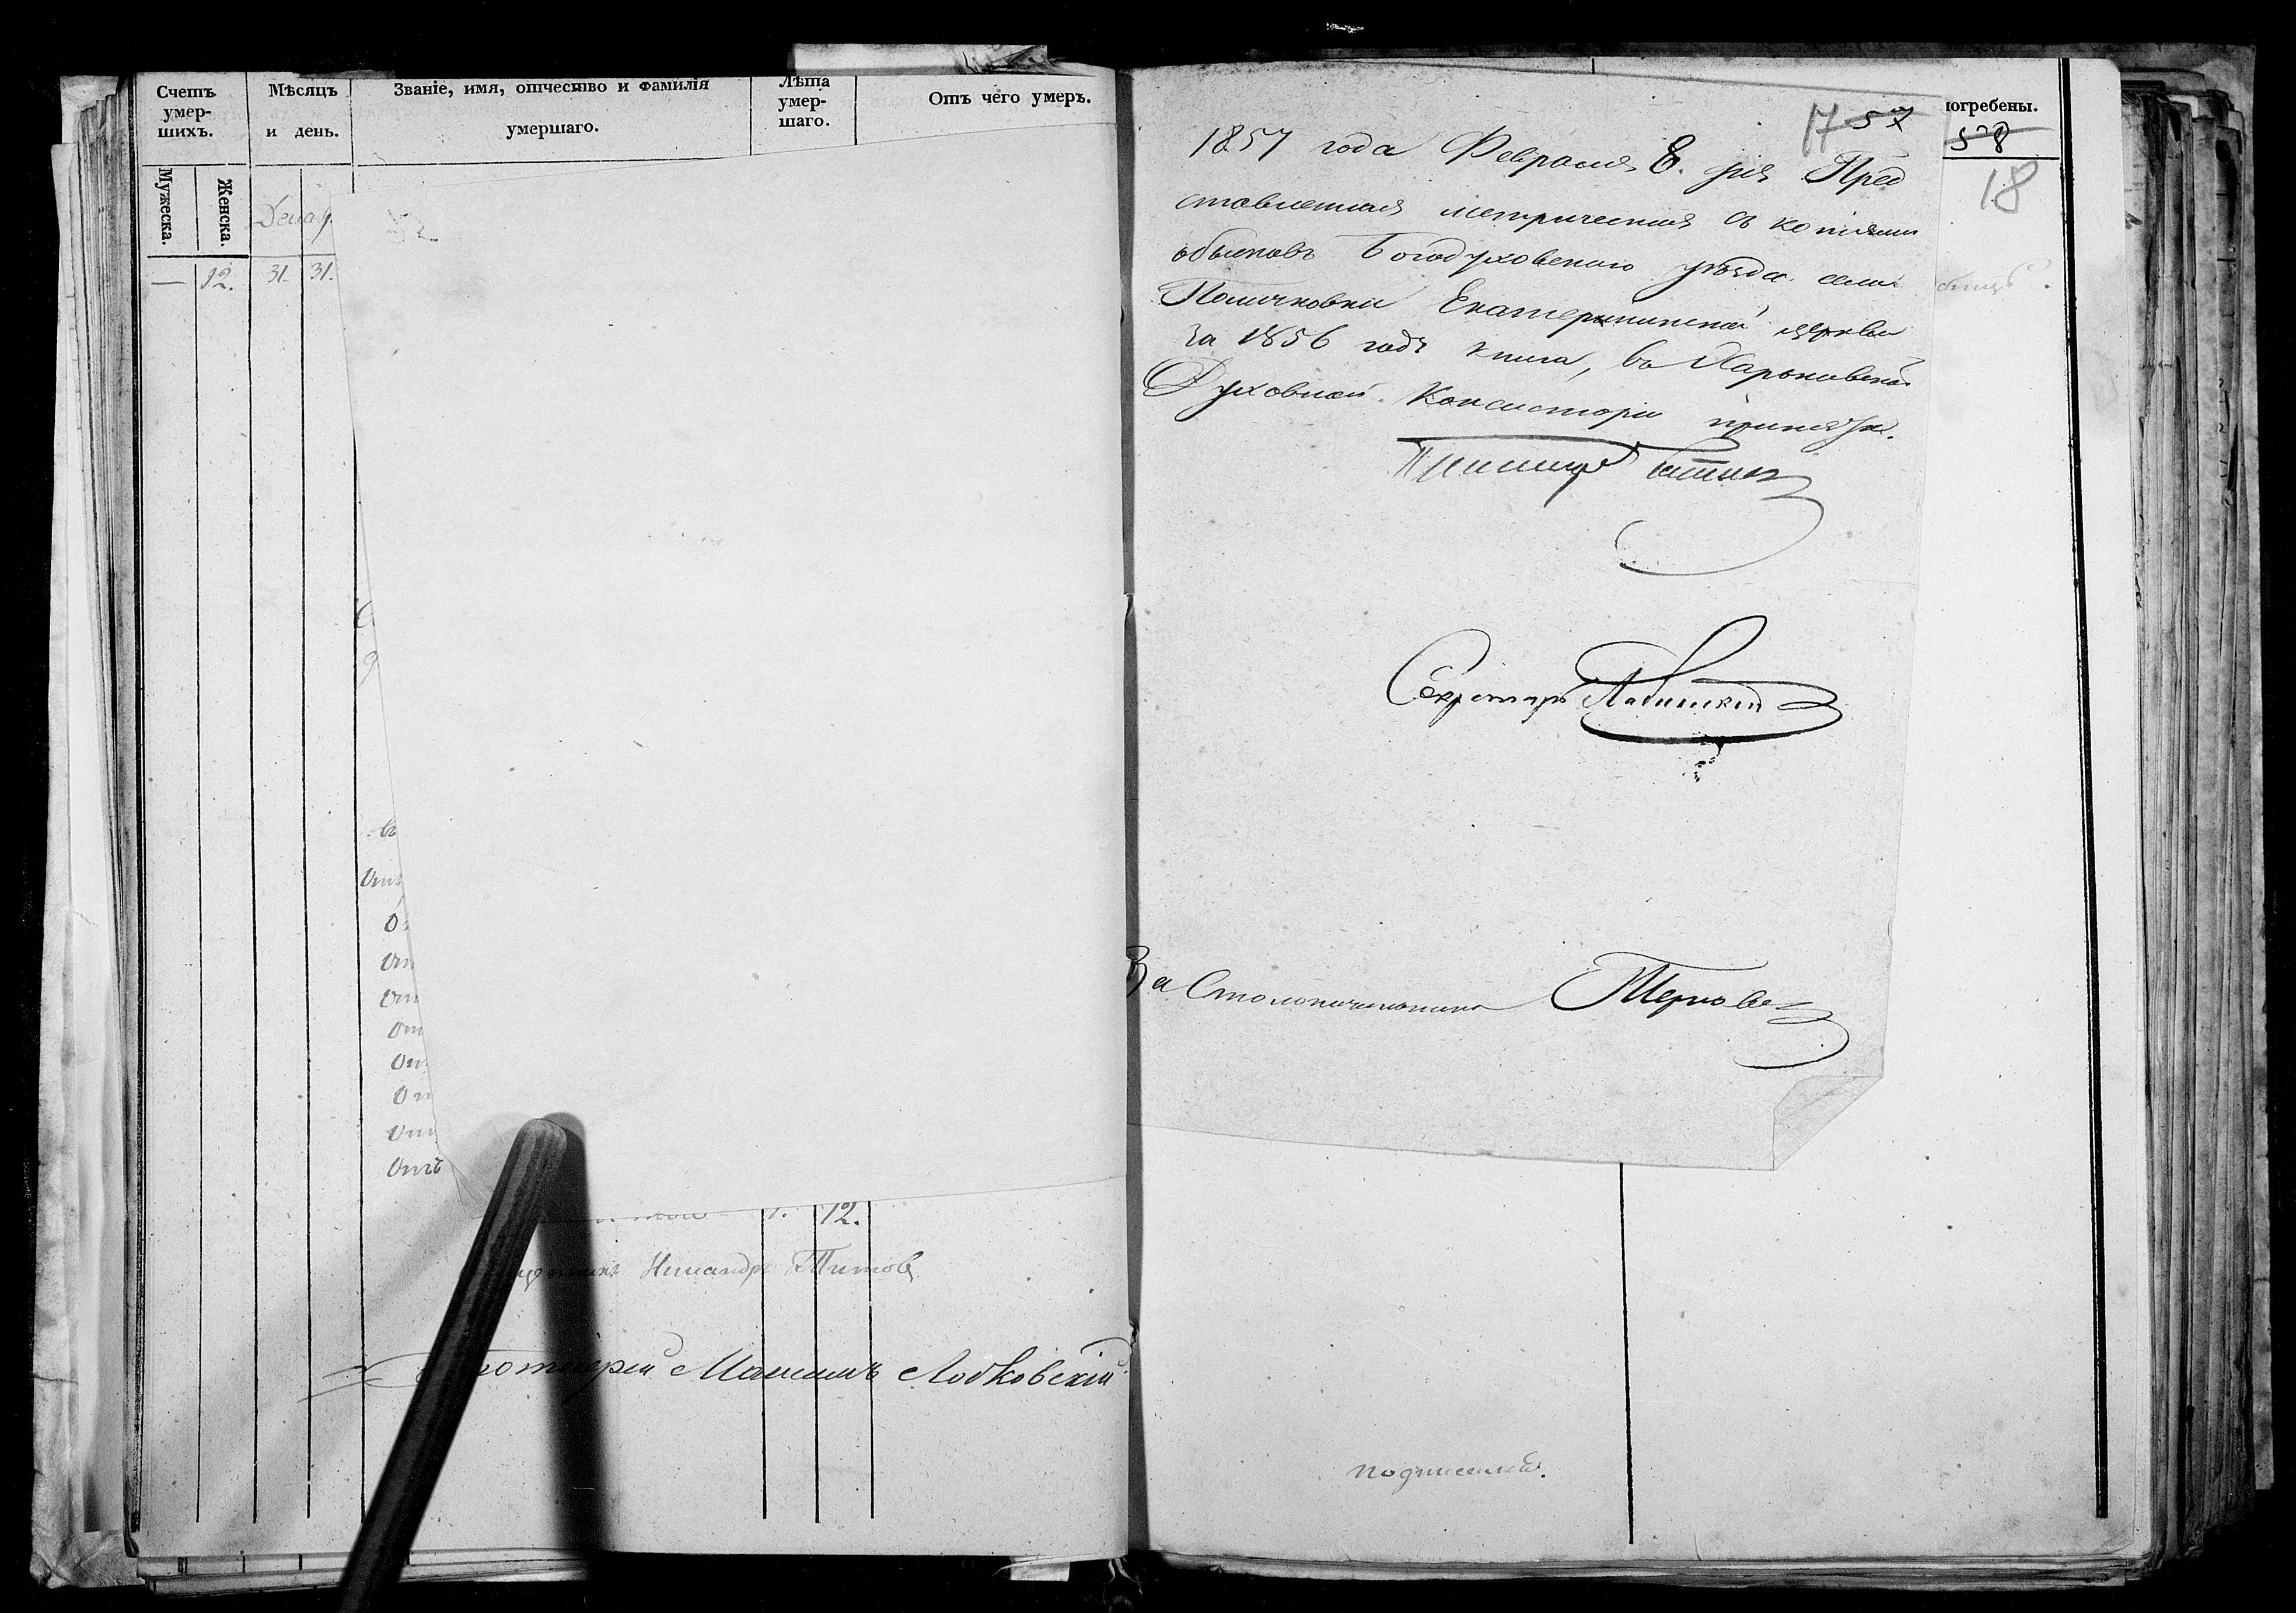 Счетъ умер- шихъ.
Мѣсяцъ и день.
Званіе, имя, отчество и фамилія умершаго.
Лѣта умер- шаго.
Отъ чего умеръ.
Мужеска.
Женска.
Декаб.
— 12. 31. 31.
въ
От
От
От
От
От
От
От
Отъ
12.
Титовъ
Максимъ Лобковскій
17 57
1857 года Февраля 8. дня Пред
ставленная метрическая съ копіями
обысковъ Богодуховскаго уѣзда села
Екатерининской церкви
за 1856 годъ книга, въ Харьковской
Духовной Консисторіи принята.
Секретарь
За Столоначальника
погребены.
58
18
подписалъ.